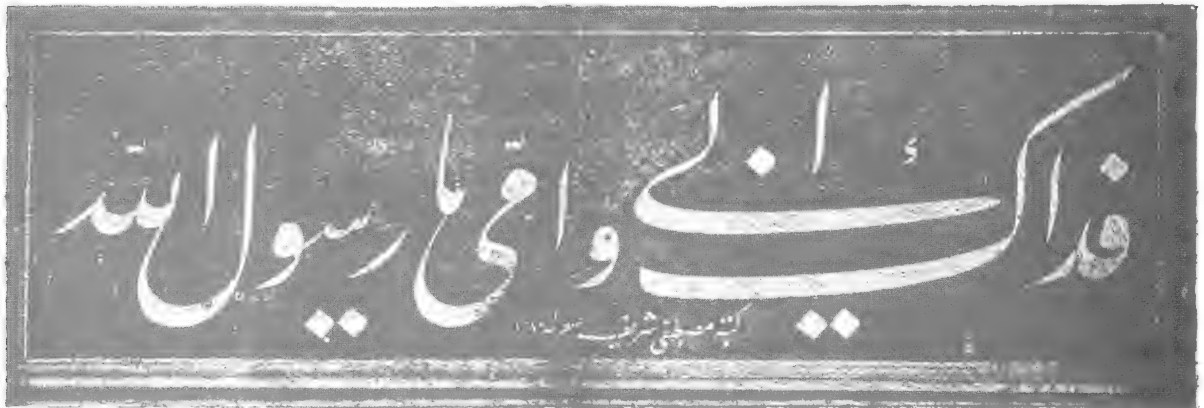 فداك ابي وامّي يا رسول الله
كتبه مصطفى شريف